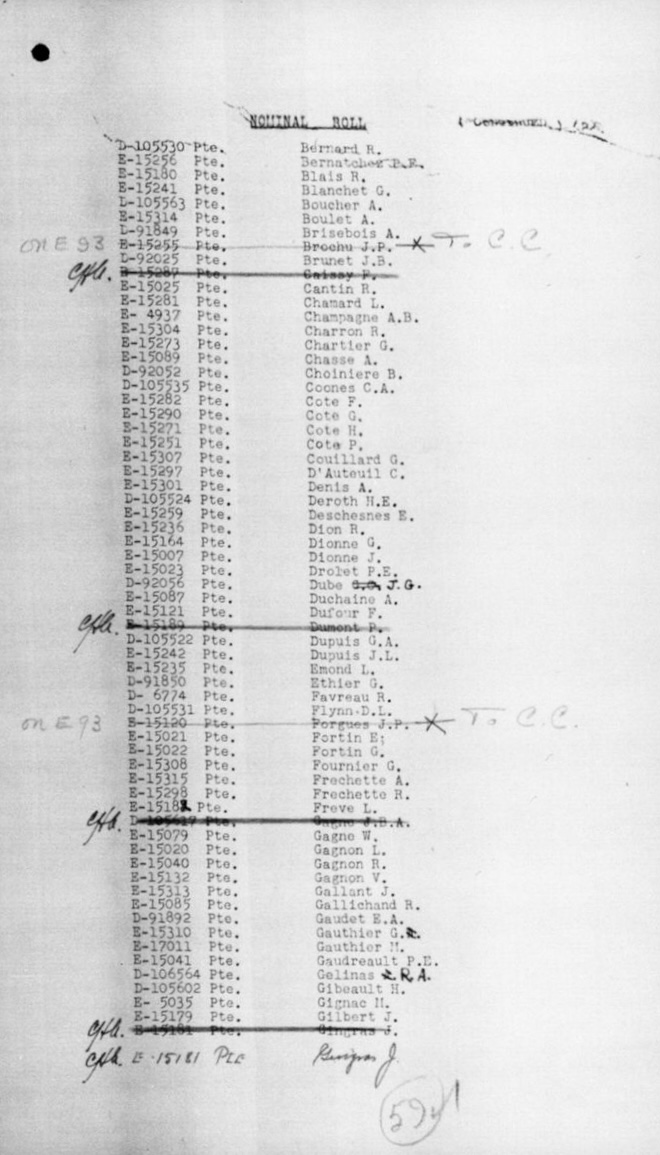 NOMINAL ROLL
D-105530 Pte. Bernard R.
E-15256 Pte. Bernatchez P.E.
E-15180 Pte. Blais R.
E-15241 Pte. Blanchet G.
D-105563 Pte. Boucher A.
E-15314 Pte. Boulet A.
D-91849 Pte. Brisebois A.
on E 93 E-15255 Pte. Brochu J.P. X To C.C.
D-92025 Pte. Brunet J.B.
E-15287 Pte. Caissy P.
E-15025 Pte. Cantin R.
E-15281 Pte. Chamard L.
E- 4937 Pte. Champagne A.B.
E-15304 Pte. Charron R.
E-15273 Pte. Chartier G.
E-15089 Pte. Chasse A.
D-92052 Pte. Choiniere B.
D-105535 Pte. Coones C.A.
E-15282 Pte. Cote F.
E-15290 Pte. Cote G.
E-15271 Pte. Cote H.
E-15251 Pte. Cote P.
E-15307 Pte. Couillard G.
E-15297 Pte. D'Auteuil C.
E-15301 Pte. Denis A.
D-105524 Pte. Deroth H.E.
E-15259 Pte. Deschesnes E.
E-15236 Pte. Dion R.
E-15164 Pte. Dionne G.
E-15007 Pte. Dionne J.
E-15023 Pte. Drolet P.E.
D-92056 Pte. Dube J.G.
E-15087 Pte. Duchaine A.
E-15121 Pte. Dufour F.
E-15189 Pte. Dumont P.
D-105522 Pte. Dupuis G.A.
E-15242 Pte. Dupuis J.L.
E-15235 Pte. Emond L.
D-91850 Pte. Ethier G.
D- 6774 Pte. Favreau R.
D-105531 Pte. Flynn D.L.
on E 93 E-15120 Pte. Forgues J.P. X To C.C.
E-15021 Pte. Fortin E;
E-15022 Pte. Fortin G.
E-15308 Pte. Fournier G.
E-15315 Pte. Frechette A.
E-15298 Pte. Frechette R.
Pte. Freve L.
D-105617 Pte. Gagne J.B.A.
E-15079 Pte. Gagne W.
E-15020 Pte. Gagnon L.
E-15040 Pte. Gagnon R.
E-15132 Pte. Gagnon V.
E-15313 Pte. Gallant J.
E-15085 Pte. Gallichand R.
D-91892 Pte. Gaudet E.A.
E-15310 Pte. Gauthier G.
E-17011 Pte. Gauthier M.
E-15041 Pte. Gaudreault P.E.
D-106564 Pte. Gelinas R.A.
D-105602 Pte. Gibeault H.
E- 5035 Pte. Gignac M.
E-15179 Pte. Gilbert J.
E-15181 Pte. Gingras J.
E-15181 Pte Gingras J.
59